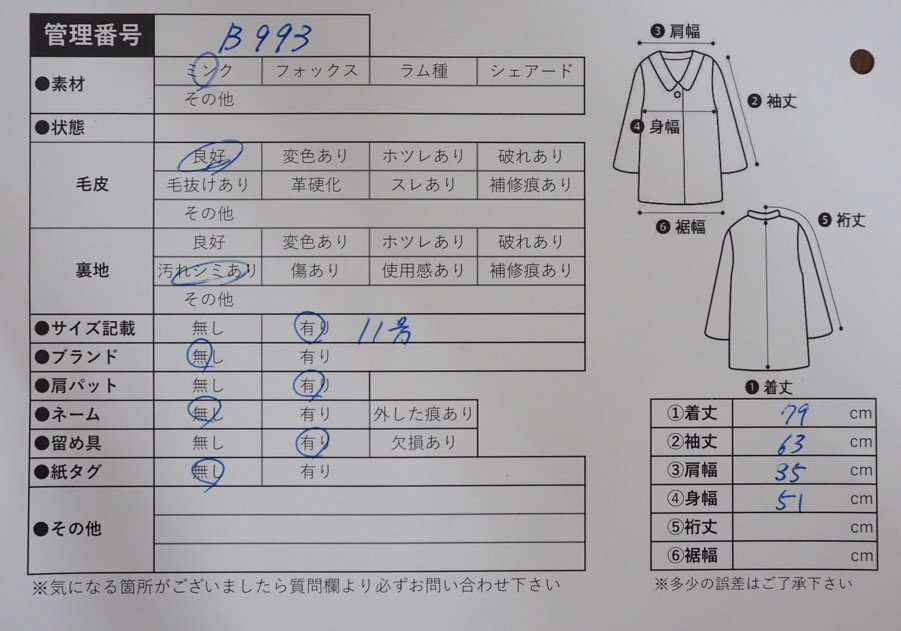 管理番号 B993
●素材 ミンク フォックス ラム種 シェアード
その他
●状態
毛皮 良好 変色あり ホツレあり 破れあり
毛抜けあり 革硬化 スレあり 補修痕あり
その他
裏地 良好 変色あり ホツレあり 破れあり
汚れシミあり 傷あり 使用感あり 補修痕あり
その他
●サイズ記載 無し 有り 11号
●ブランド 無し 有り
●肩パット 無し 有り
●ネーム 無し 有り 外した痕あり
●留め具 無し 有り 欠損あり
●紙タグ 無し 有り
●その他
※気になる箇所がございましたら質問欄より必ずお問い合わせ下さい
❸肩幅
❷袖丈
❹身幅
❻裄幅
❺裄丈
❶着丈
①着丈 79 cm
②袖丈 63 cm
③肩幅 35 cm
④身幅 51 cm
⑤裄丈 cm
⑥裾幅 cm
※多少の誤差はご了承下さい